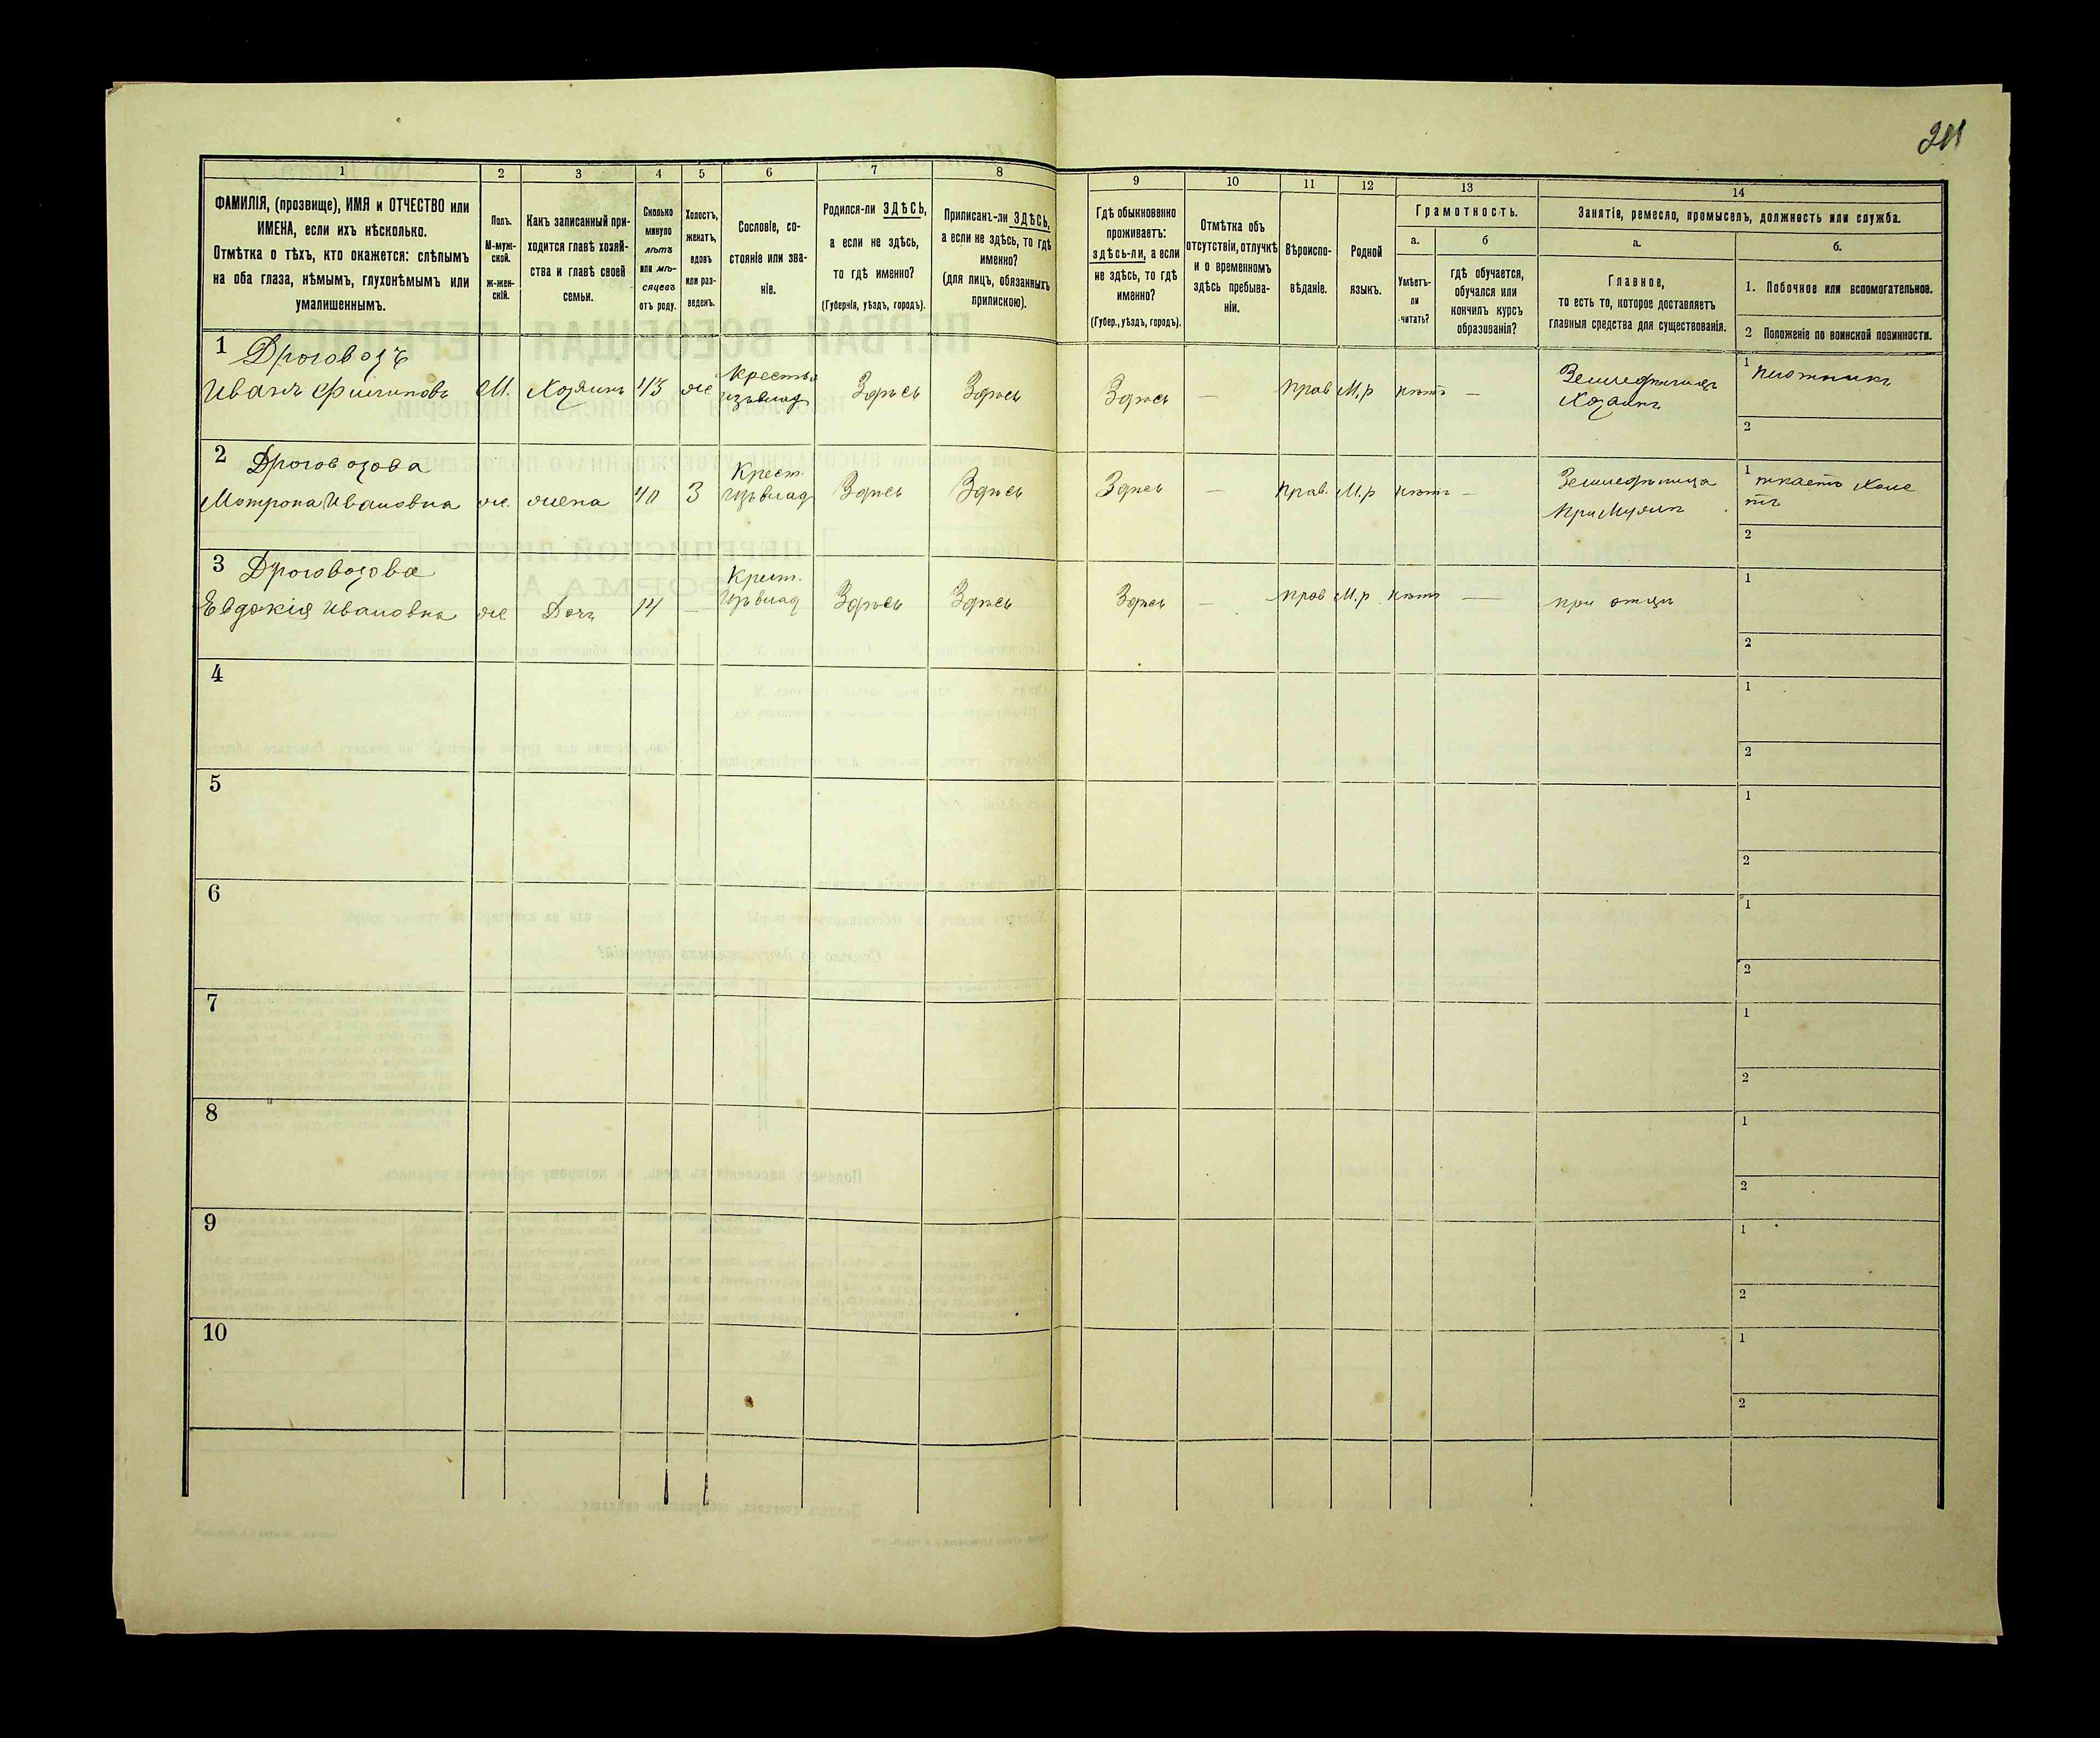 1
2
3
4
5
6
7
8
9
10
11
12
13
14
ФАМИЛІЯ, (прозвище), ИМЯ и ОТЧЕСТВО или
ИМЕНА, если ихъ нѣсколько.
Отмѣтка о тѣхъ, кто окажется: слѣпымъ
на оба глаза, нѣмымъ, глухонѣмымъ или
умалишеннымъ.
Полъ.
М-муж-
ской.
ж-жен-
скій.
Какъ записанный при-
ходится главѣ хозяй-
ства и главѣ своей
семьи.
Сколько
минуло
лѣтъ
или мѣ-
сяцевъ
отъ роду.
Холостъ,
женатъ,
вдовъ
или раз-
веденъ.
Сословіе, со-
стояніе или зва-
ніе.
Родился-ли ЗДѢСЬ,
а если не здѣсь,
то гдѣ именно?
(Губернія, уѣздъ, городъ).
Приписанъ-ли ЗДѢСЬ,
а если не здѣсь, то гдѣ
именно?
(для лицъ, обязанныхъ
припискою).
Гдѣ обыкновенно
проживаетъ:
здѣсь-ли, а если
не здѣсь, то гдѣ
именно?
(Губер., уѣздъ, городъ).
Отмѣтка объ
отсутствіи, отлучкѣ
и о временномъ
здѣсь пребыва-
ніи.
Вѣроиспо-
вѣданіе.
Родной
языкъ.
Грамотность.
а.
б
Умѣетъ-
ли
читать?
гдѣ обучается,
обучался или
кончилъ курсъ
образованія?
Занятіе, ремесло, промыселъ, должность или служба.
а.
б.
Главное,
то есть то, которое доставляетъ
главныя средства для существованія.
1. Побочное или вспомогательное.
2 Положеніе по воинской повинности.
1 Дроговозъ
Иванъ Филиповъ М. Хозяинъ 43 ж Крестья изъ влад Здѣсь Здѣсь Здѣсь — прав М.р нѣтъ —
Земледѣлецъ
Хозяинъ
1 плотникъ
2
2 Дроговозова
Мотрона Ивановна ж. жена 40 3 Крест. изъ влад Здѣсь Здѣсь Здѣсь — прав. М.р нѣтъ —
Земледѣлица
При Мужѣ
1 ткаетъ Холс
тъ
2
3 Дроговозова
Евдокія Ивановна ж Дочь 14 — Крест. Изъ влад Здѣсь Здѣсь Здѣсь — прав М.р нѣтъ —
при отцѣ
1
2
4
1
2
5
1
2
6
1
2
7
1
2
8
1
2
9
1
2
10
1
2